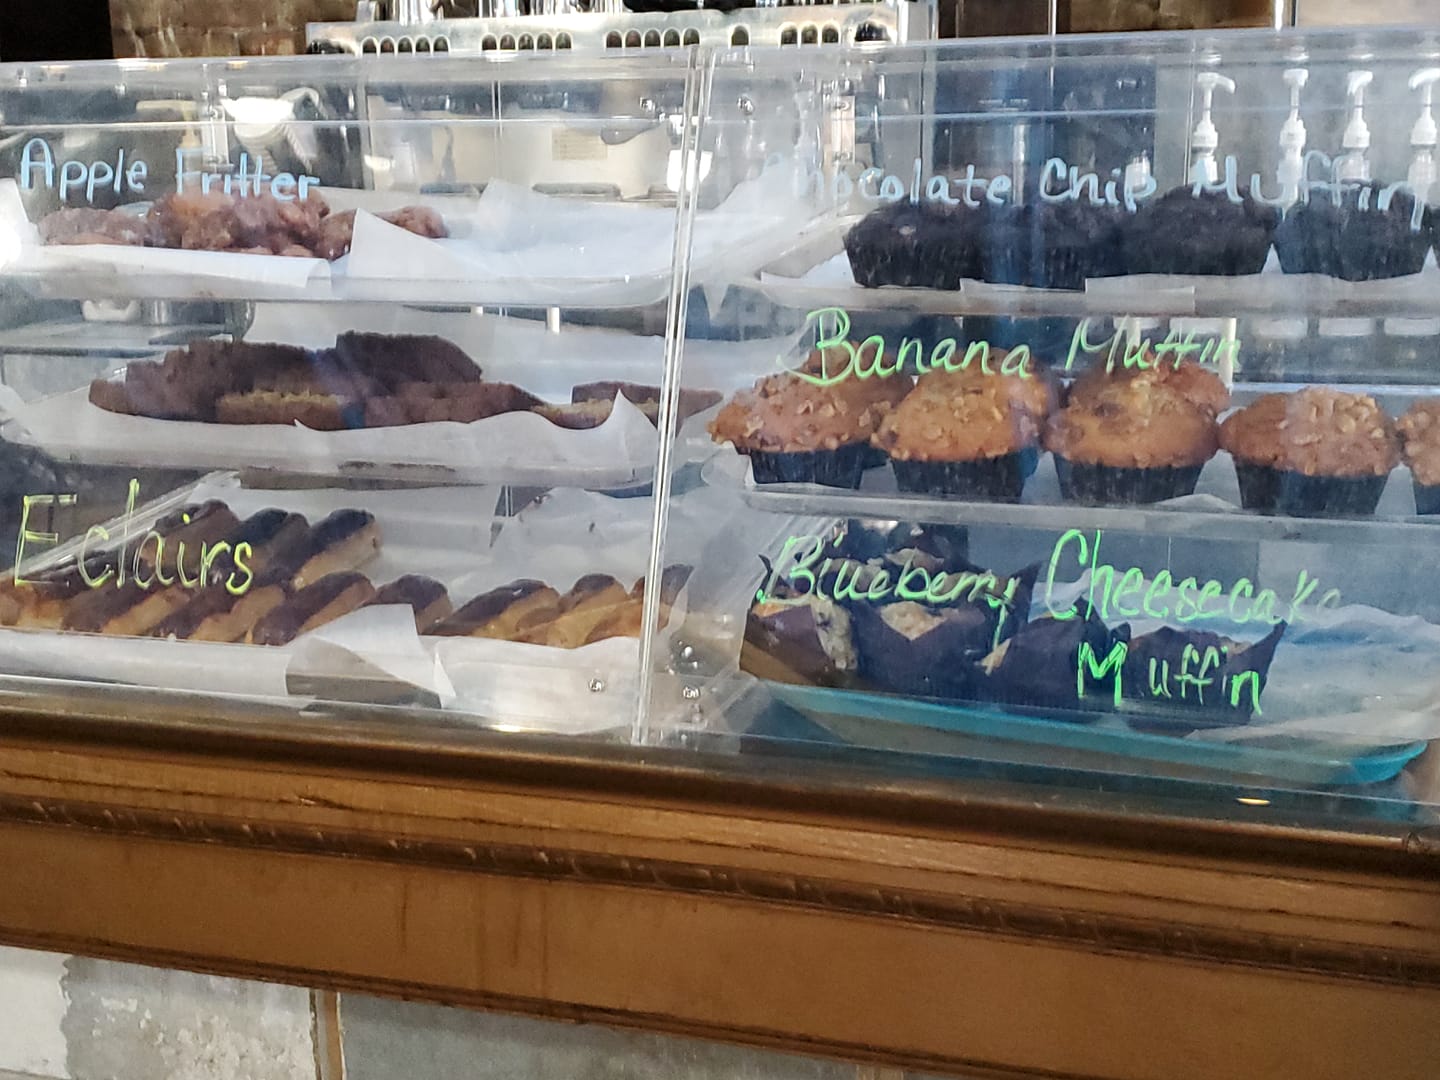 Apple Fritter
Chocolate Chip Muffin
Banana Muffin
Eclairs
Blueberry Cheesecake
Muffin